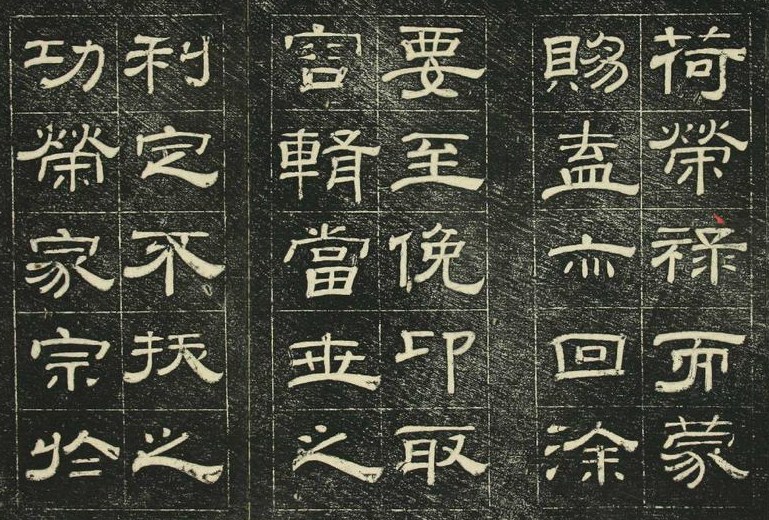 荷榮祿而蒙
賜盍亦回涂
要至俛卬取
容輯當世之
利定不拔之
功榮家宗於